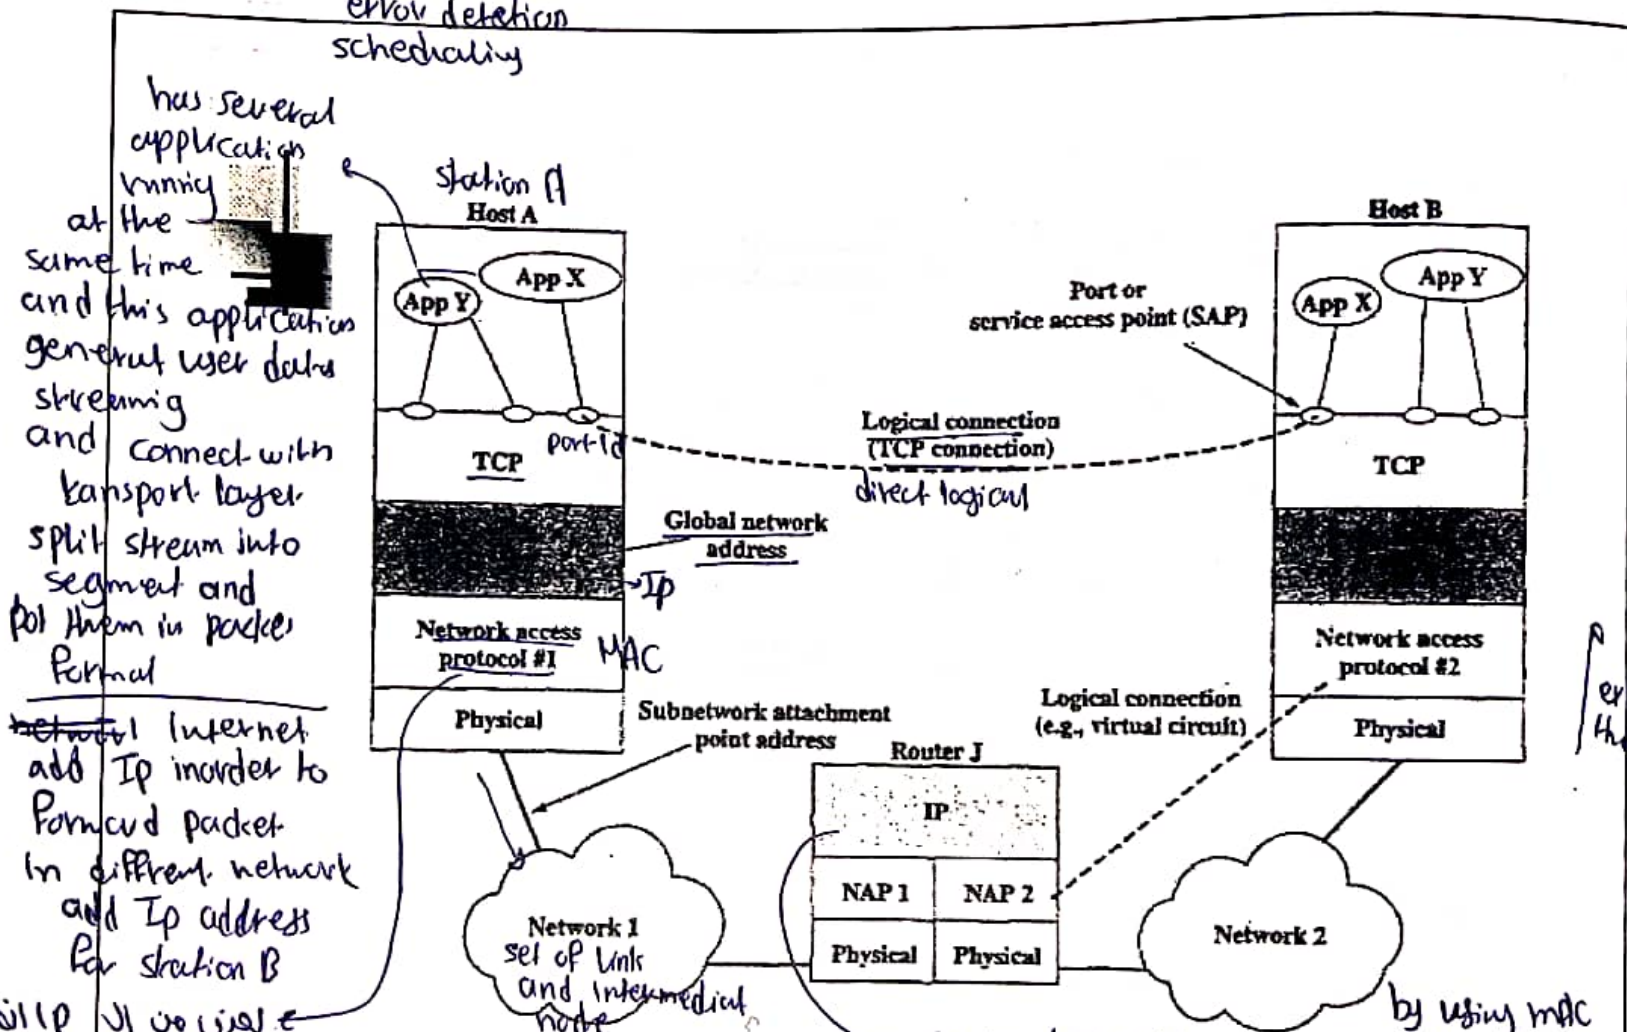 error detetion
scheduling
has several
application
running
at the
same time
and this application
generat user data
streamig
and connect with
transport layer
split stream into
segment and
Put them in packet
format
Internet
add Ip inorder to
Forward packet
In diffrent network
add Ip address
for station B
station A
Host A
App Y
App X
port-id
TCP
Global network
address
Ip
Network access
protocol #1
MAC
Physical
Subnetwork attachment
point address
Network 1
set of link
and intermediat
node
Logical connection
(TCP connection)
direct logical
Port or
service access point (SAP)
Logical connection
(e.g., virtual circuit)
Router J
IP
NAP 1
NAP 2
Physical
Physical
Host B
App X
App Y
TCP
Network access
protocol #2
Physical
Network 2
by using MAC